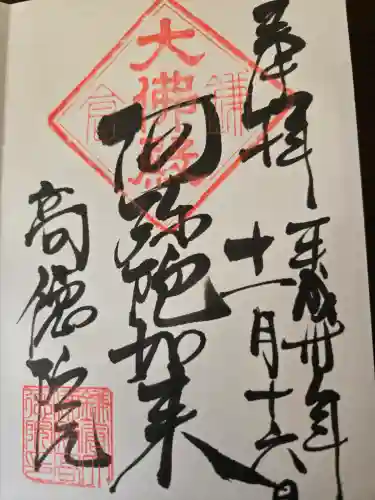 奉拝
平成卅年
十一月十六日
大佛殿
鎌
倉
阿弥陀如来
高徳院